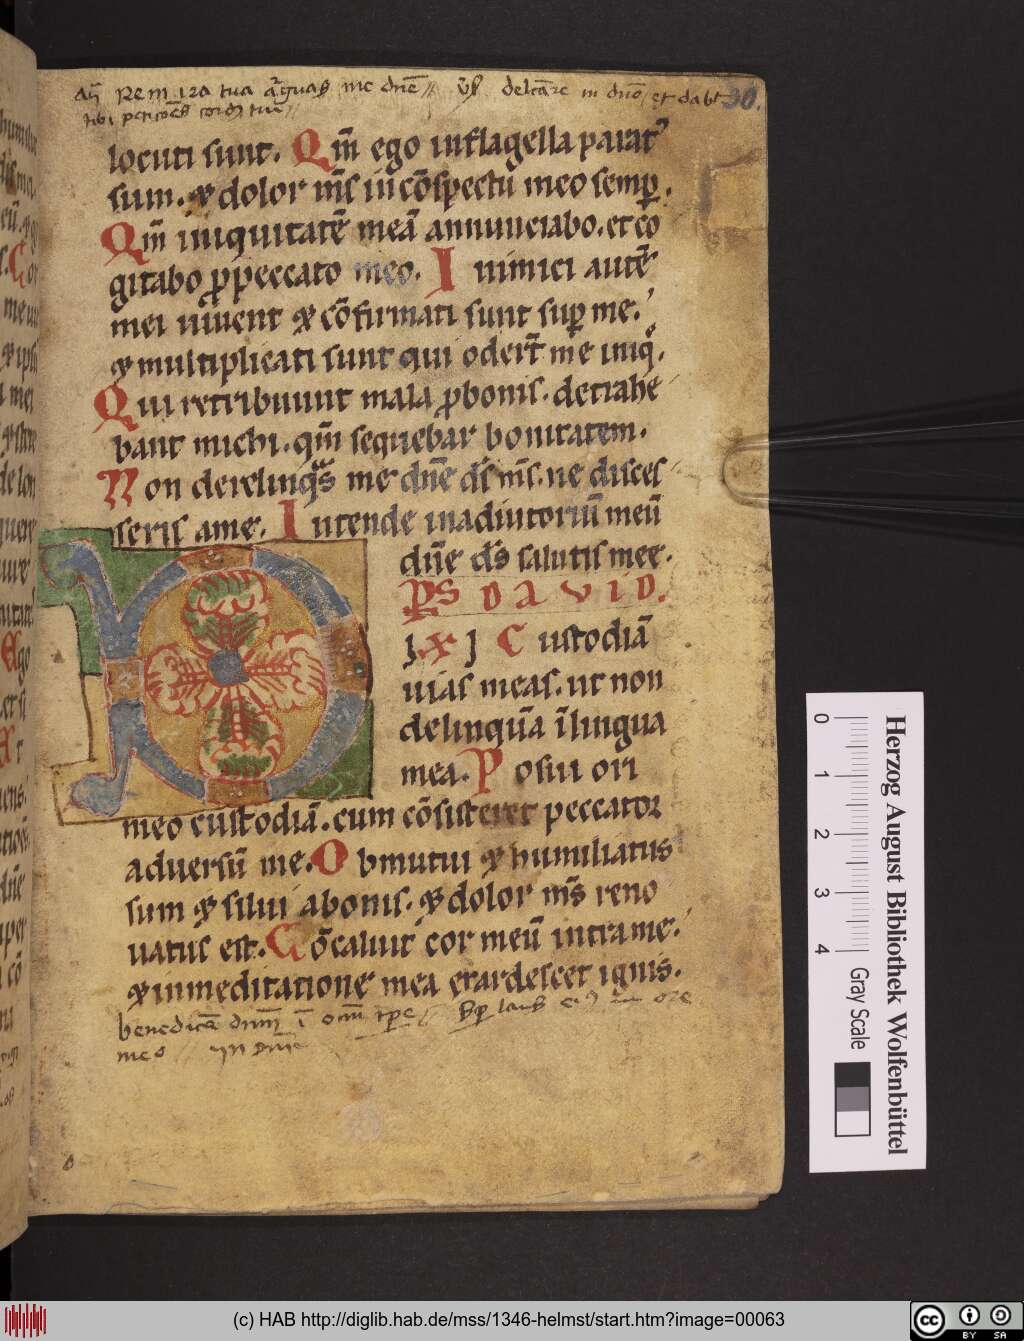 Añ Rem ira tua arguas me dñe // vs delectare in dño et dabt 30.
tibi peticōes cordis tui //
locuti sunt. Qm̄ ego inflagella parat᷒
sum. & dolor m̄s in cōspectu meo semp̱.
Qm̄ iniquitatē meā annunciabo. et co
gitabo ꝓpeccato meo. Inimici autē
mei uiuent & cōfirmati sunt sup̱ me.
& multiplicati sunt qui oder̄t me iniq̄.
Qui retribuunt mala ꝓbonis. detrahe
bant michi. qm̄ sequebar bonitatem.
Non derelinq̄s me dñe d̄s m̄s. ne disces
seris ame. Intende inadiutoriū meū
dñe d̄s salutis mee.
PS DAVID.
Dixi Custodiā
uias meas. ut non
delinquā ī lingua
mea. Posui ori
meo custodiā. cum cōsisteret peccator
aduersū me. Obmutui & humiliatus
sum & silui abonis. & dolor m̄s reno
uatus est. Cōcaluit cor meū intra me.
& inmeditatione mea exardescet ignis.
benedicā dnm̄ ī om̄i tp̱e // Sp̱ laus ei᷒ ore
meo //
Herzog August Bibliothek Wolfenbüttel
0 1 2 3 4 Gray Scale
(c) HAB http://diglib.hab.de/mss/1346-helmst/start.htm?image=00063
cc BY SA